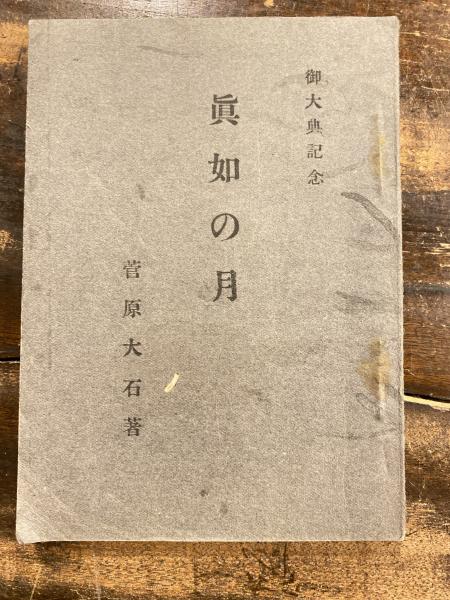 御大典記念
眞如の月
菅原大石著